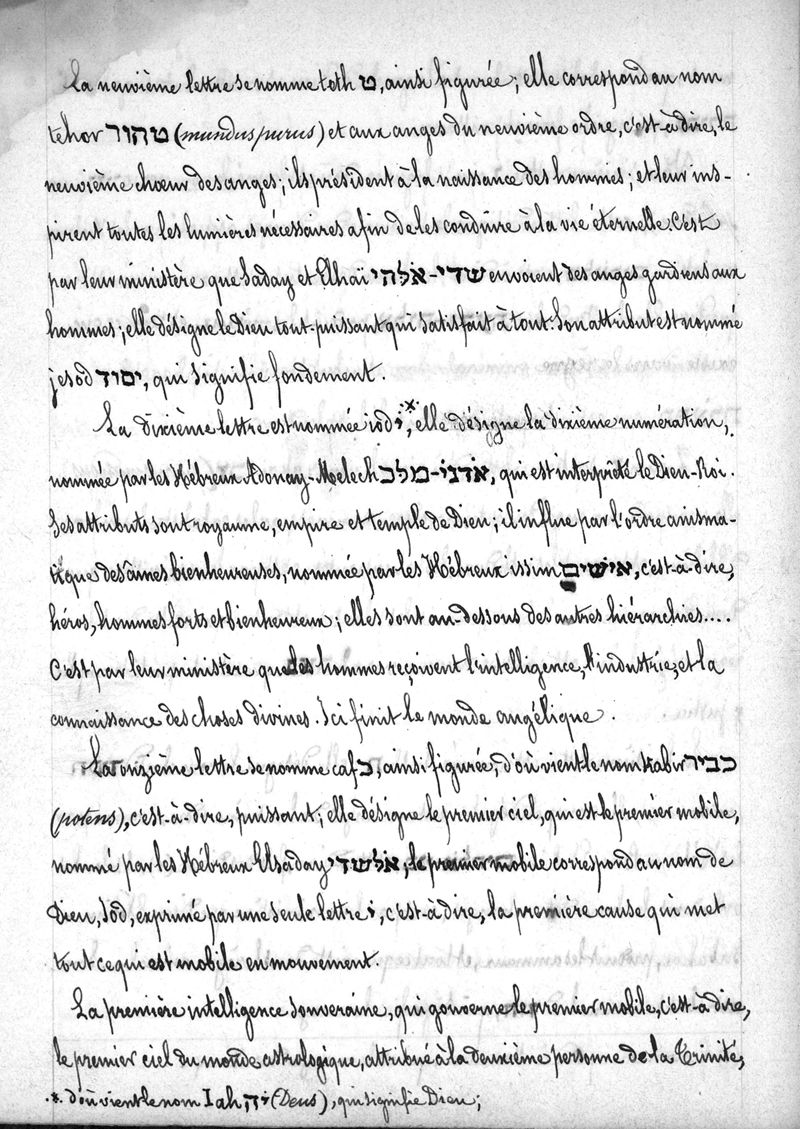 La neuvième lettre se nomme toth ט, ainsi figurée ; elle correspond au nom
tehor טהור (mundus purus) et aux anges du neuvième ordre, c'est-à-dire, le
neuvième chœur des anges ; ils président à la naissance des hommes ; et leur ins-
pirent toutes les lumières nécessaires afin de les conduire à la vie éternelle. C'est
par leur ministère que Saday et Elhaï שדי-אלהי envoient des anges gardiens aux
hommes ; elle désigne le Dieu tout-puissant qui satisfait à tout. Son attribut est nommé
jesod יסוד, qui signifie fondement.
La dixième lettre est nommée iod י*, elle désigne la dixième numération,
nommée par les Hébreux Adonay-Melech אדני-מלכ, qui est interprété le Dieu-Roi.
Ses attributs sont royaume, empire et temple de Dieu ; il influe par l'ordre anisma-
tique des âmes bienheureuses, nommée par les Hébreux issim אישים, c'est-à-dire,
héros, hommes forts et bienheureux ; elles sont au-dessous des autres hiérarchies....
C'est par leur ministère que les hommes reçoivent l'intelligence, l'industrie, et la
connaissance des choses divines. Ici finit le monde angélique.
La onzième lettre se nomme caf כ, ainsi figurée, d'où vient le nom Kabir כביר
(potens), c'est-à-dire, puissant ; elle désigne le premier ciel, qui est le premier mobile,
nommé par les Hébreux Elsaday אלשדי, le premier mobile correspond au nom de
Dieu, Iod, exprimé par une seule lettre י, c'est-à-dire, la première cause qui met
tout ce qui est mobile en mouvement.
La première intelligence souveraine, qui gouverne le premier mobile, c'est-à-dire,
le premier ciel du monde astrologique, attribué à la deuxième personne de la Trinité,
.*. d'où vient le nom Iah יה (Deus), qui signifie Dieu ;